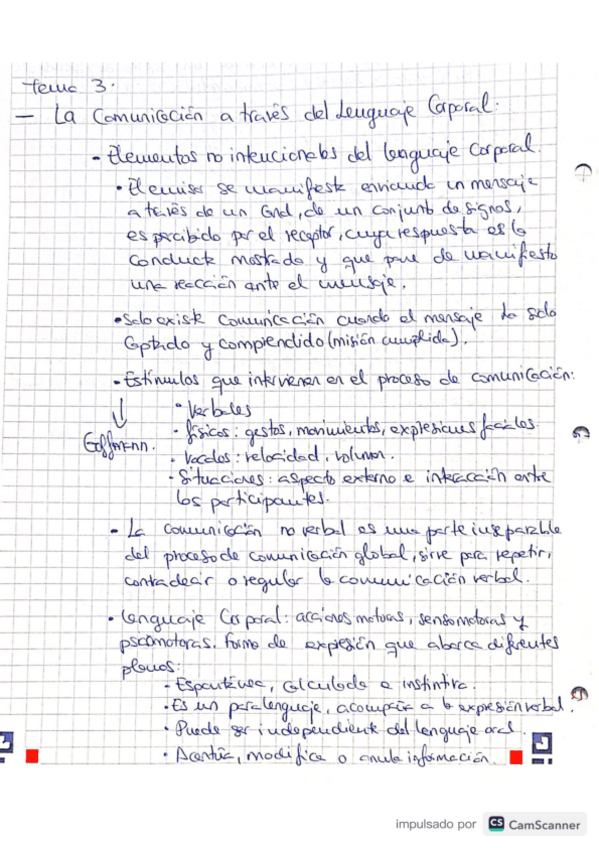 Tema 3.
— La Comunicación a través del Lenguaje Corporal.
- Elementos no intencionales del lenguaje corporal.
• El emisor se manifiesta enviando un mensaje
a través de un canal, de un conjunto de signos,
es percibido por el receptor, cuya respuesta es la
conducta mostrada y que pone de manifiesto
una reacción ante el mensaje.
• Solo existe comunicación cuando el mensaje ha sido
captado y comprendido (misión cumplida).
- Estímulos que intervienen en el proceso de comunicación:
↓
Goffmann.
• Verbales
• físicos: gestos, movimientos, expresiones faciales
• Vocales: velocidad, volumen.
• Situaciones: aspecto externo e interacción entre
los participantes.
• La comunicación no verbal es una parte inseparable
del proceso de comunicación global, sirve para repetir,
contradecir o regular la comunicación verbal.
• Lenguaje Corporal: acciones motoras, sensomotoras y
psicomotoras. Forma de expresión que abarca diferentes
planos:
• Espontánea, calculada e instintiva.
• Es un paralenguaje, acompaña a la expresión verbal.
• Puede ser independiente del lenguaje oral.
• Acentúa, modifica o anula información.
impulsado por CS CamScanner